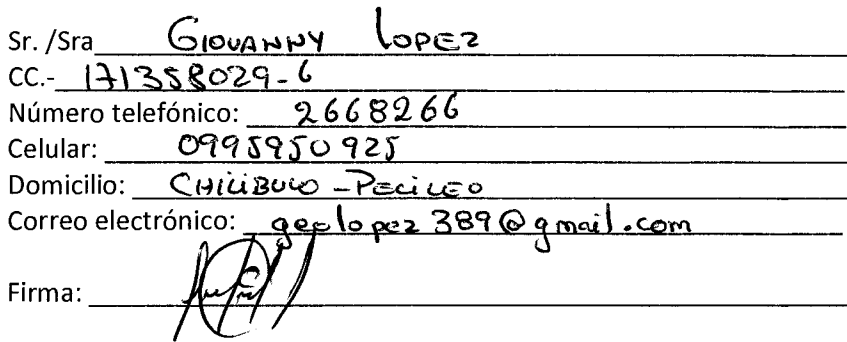 Sr. /Sra GIOVANNY LOPEZ
CC.- 171358029-6
Número telefónico: 2668266
Celular: 0995950925
Domicilio: CHILIBULO - PELILEO
Correo electrónico: geolopez389@gmail.com
Firma: